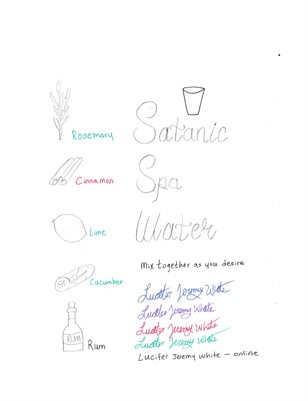 Rosemary
Satanic
Cinnamon
Spa
Lime
Water
Mix together as you desire
Cucumber
Lucifer Jeremy White
Lucifer Jeremy White
Lucifer Jeremy White
RUM
Rum
Lucifer Jeremy White
Lucifer Jeremy White — online